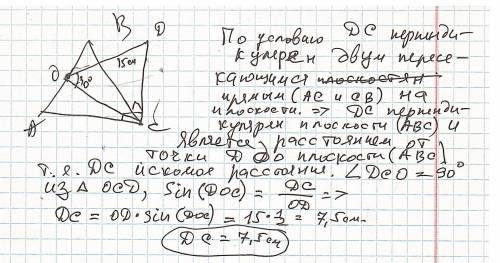 В
D
О
15см
30°
А
С
По условию DC перпенди-
кулярен двум пересе-
кающимся плоскостям
прямым (AC и CB) на
плоскости. => DC перпенди-
кулярен плоскости (ABC) и
является расстоянием от
точки D до плоскости (ABC)
т.е. DC искомое расстояние. ∠DCO = 90°
из Δ OCD, Sin(DOC) = DC/OD =>
DC = OD·sin(DOC) = 15·1/2 = 7,5см.
DC = 7,5см